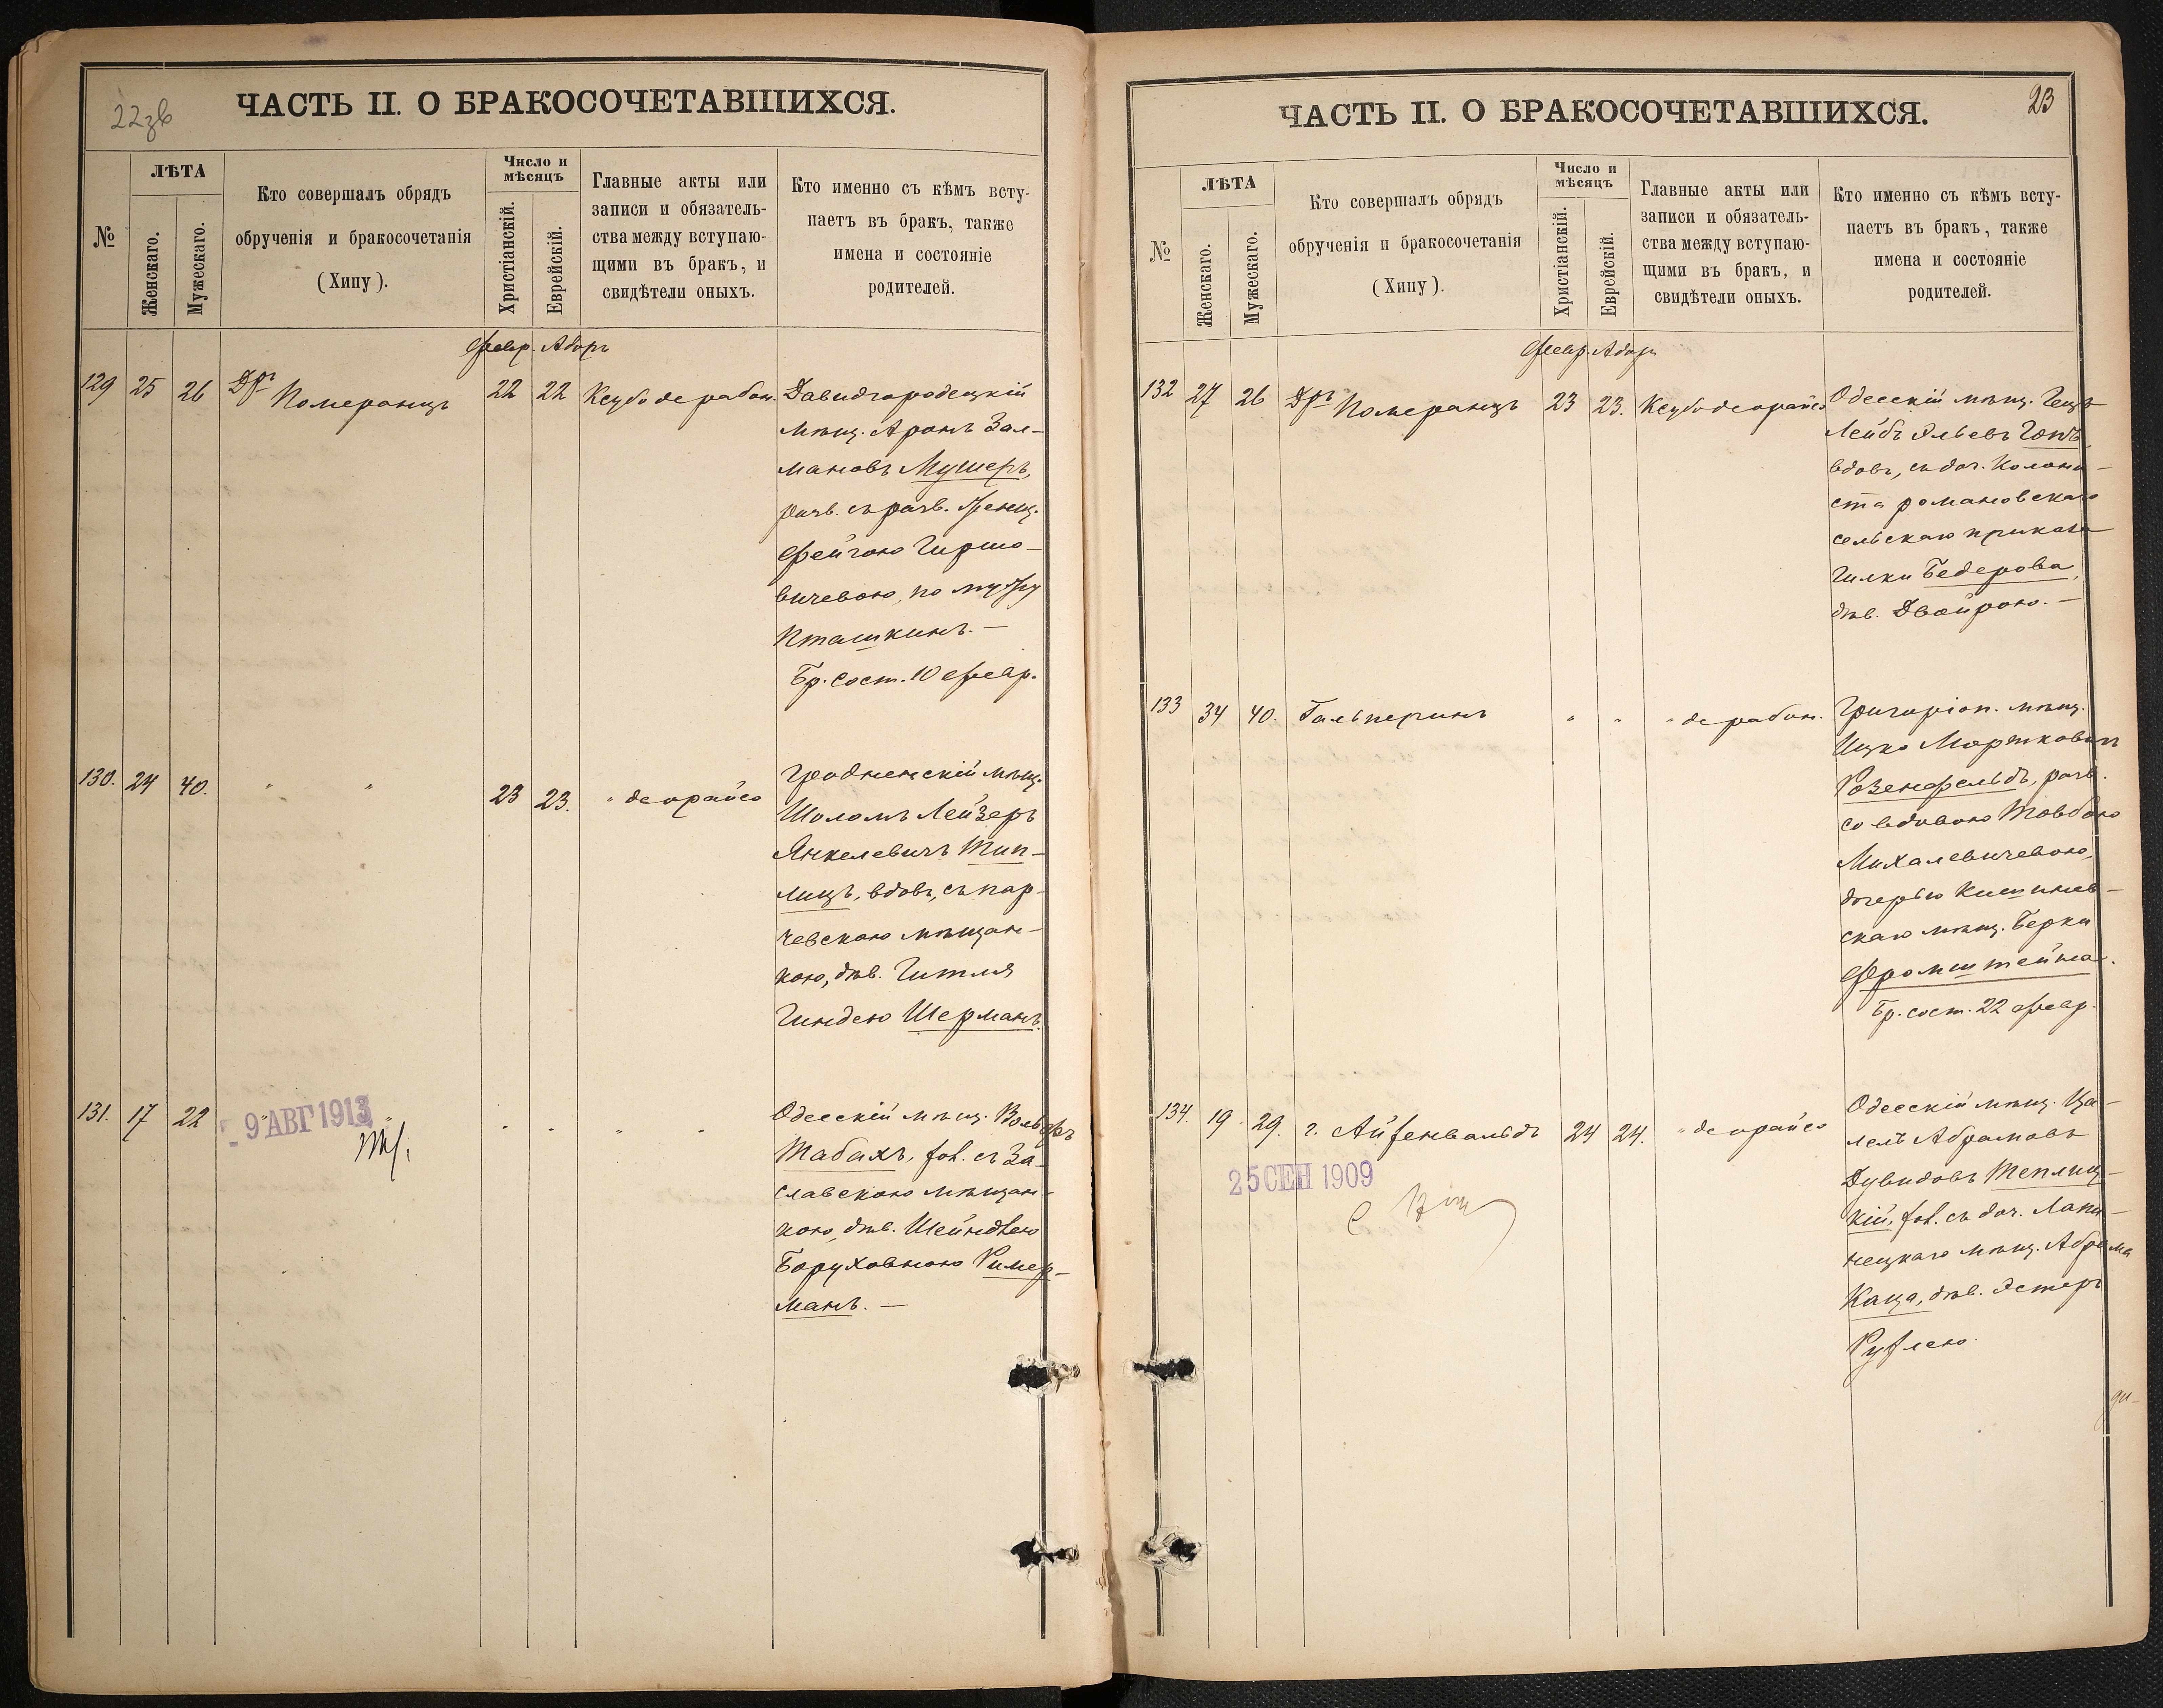 22зв
ЧАСТЬ II. О БРАКОСОЧЕТАВШИХСЯ.
№
ЛѢТА
Женскаго.
Мужескаго.
Кто совершалъ обрядъ
обрученія и бракосочетанія
(Хипу).
Число и
мѣсяцъ
Христіанскій.
Еврейскій.
Главные акты или
записи и обязатель-
ства между вступаю-
щими въ бракъ, и
свидѣтели оныхъ.
Кто именно съ кѣмъ всту-
паетъ въ бракъ, также
имена и состояніе
родителей.
февр. Адаръ
129 25 26 Др. Померанцъ 22 22 Ксубо дерабон. Давидгородецкій
мѣщ. Аронъ Зал-
мановъ Мушеръ,
разв. съ разв. женщ.
Фейгою Гиршо-
вичевою, по мужу
Пташкинъ. —
Бр. сост. 10 февр.
130. 24 40. " " 23 23. " деорайсо Гродненскій мѣщ.
Шоломъ Лейзеръ
Янкелевичъ Тип-
лицъ, вдов., съ пар-
чевскою мѣщан-
кою, дѣв. Гитля
Гиндею Шерманъ.
131. 17 22 " " " " " " Одесскій мѣщ. Вольфъ
Табахъ, хол. съ За-
славскою мѣщан-
кою, дѣв. Шейндлею
Боруховною Ример-
манъ. —
9 АВГ 1913
23
ЧАСТЬ II. О БРАКОСОЧЕТАВШИХСЯ.
№
ЛѢТА
Женскаго.
Мужескаго.
Кто совершалъ обрядъ
обрученія и бракосочетанія
(Хипу).
Число и
мѣсяцъ
Христіанскій.
Еврейскій.
Главные акты или
записи и обязатель-
ства между вступаю-
щими въ бракъ, и
свидѣтели оныхъ.
Кто именно съ кѣмъ всту-
паетъ въ бракъ, также
имена и состояніе
родителей.
февр. Адаръ
132 27 26 Др. Померанцъ 23 23. Ксубо деорайсо Одесскій мѣщ. Гецъ
Лейбъ Эльевъ
вдов., съ доч. колони-
ста романовскаго
сельскаго приказа
Гилки Бедерова,
дѣв. Двойрою. —
133 34 40. Гальперинъ " " " дерабон. Григоріоп. мѣщ.
Ицко Мортковичъ
Розенфельдъ, разв.
со вдовою Товбою
Михалевичевою,
дочерью Кишинев-
скаго мѣщ. Берки
Фромштейна.
Бр. сост. 22 февр.
134. 19 29. г. Айзенвальдъ 24 24. " деорайсо Одесскій мѣщ. Ца-
лель Абрамовъ
Дувидовъ Теплиц-
кій, хол. съ доч. Липи-
нецкаго мѣщ. Абрама
Каца, дѣв. Эстеръ
Рухлею.
25 СЕН 1909